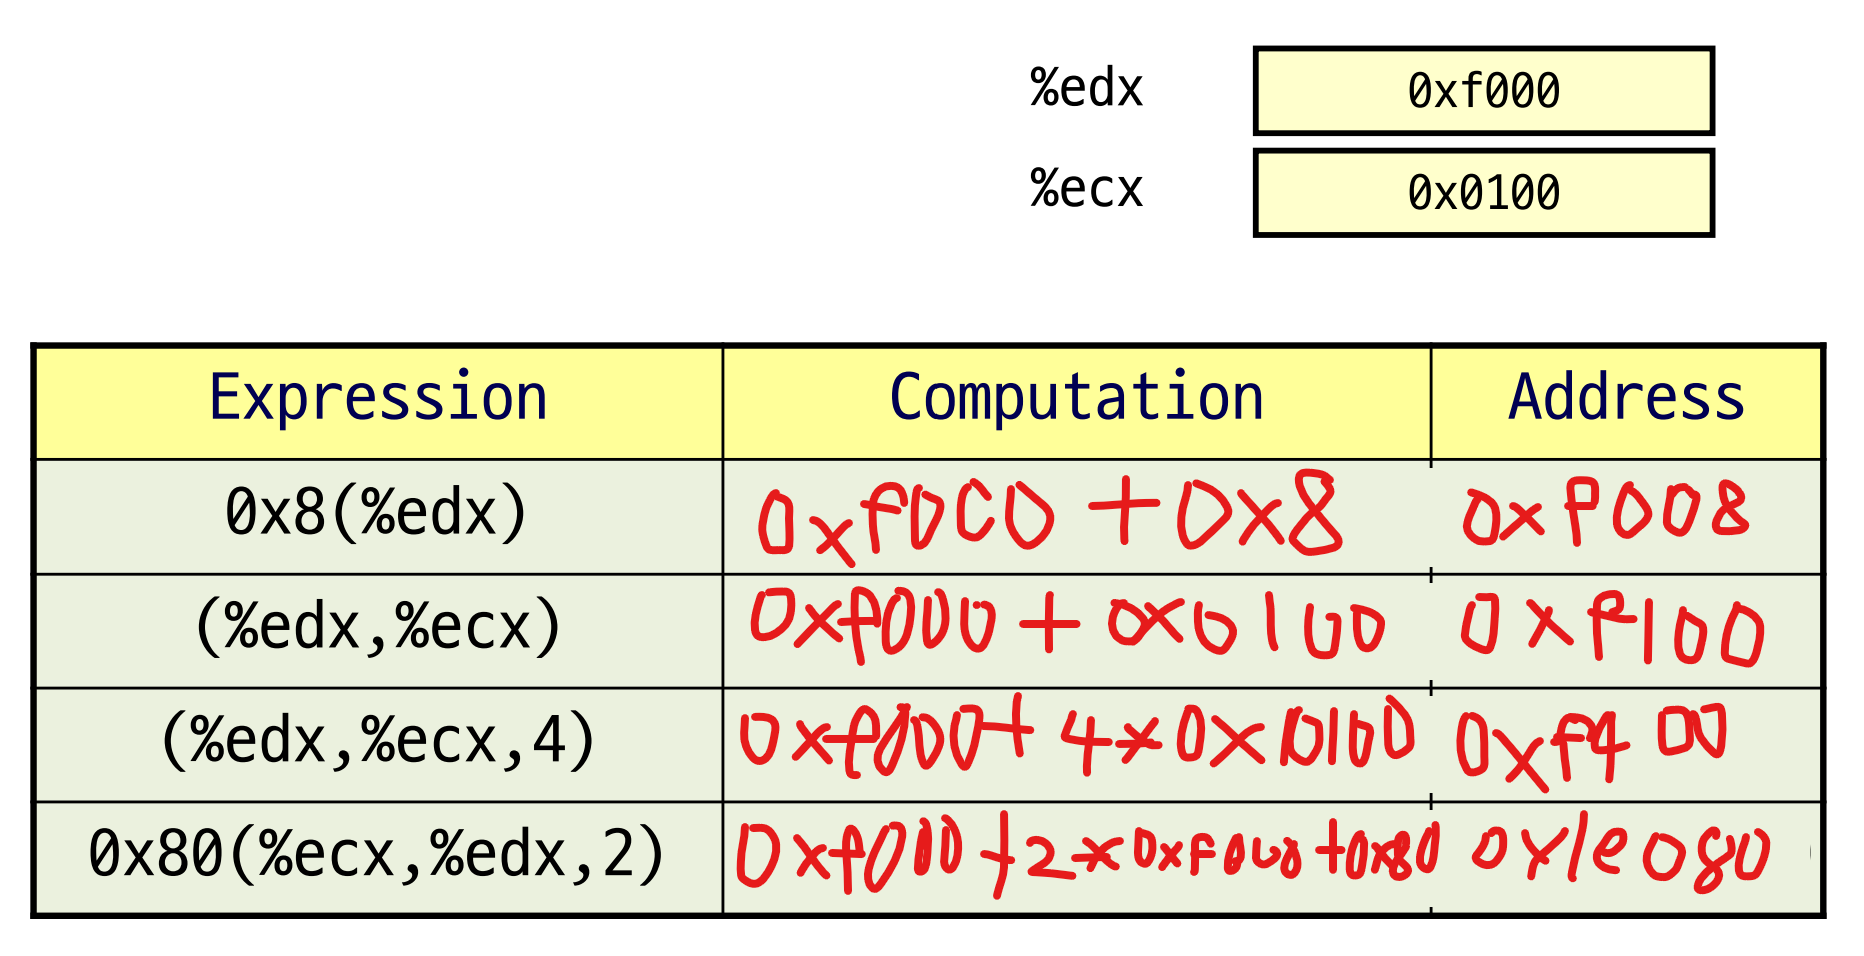 %edx 0xf000
%ecx 0x0100
Expression Computation Address
0x8(%edx) 0xf000 + 0x8 0xf008
(%edx,%ecx) 0xf000 + 0x0100 0xf100
(%edx,%ecx,4) 0xf000 + 4*0x0100 0xf400
0x80(%ecx,%edx,2) 0xf000 + 2*0xf000 + 0x80 0x1e080